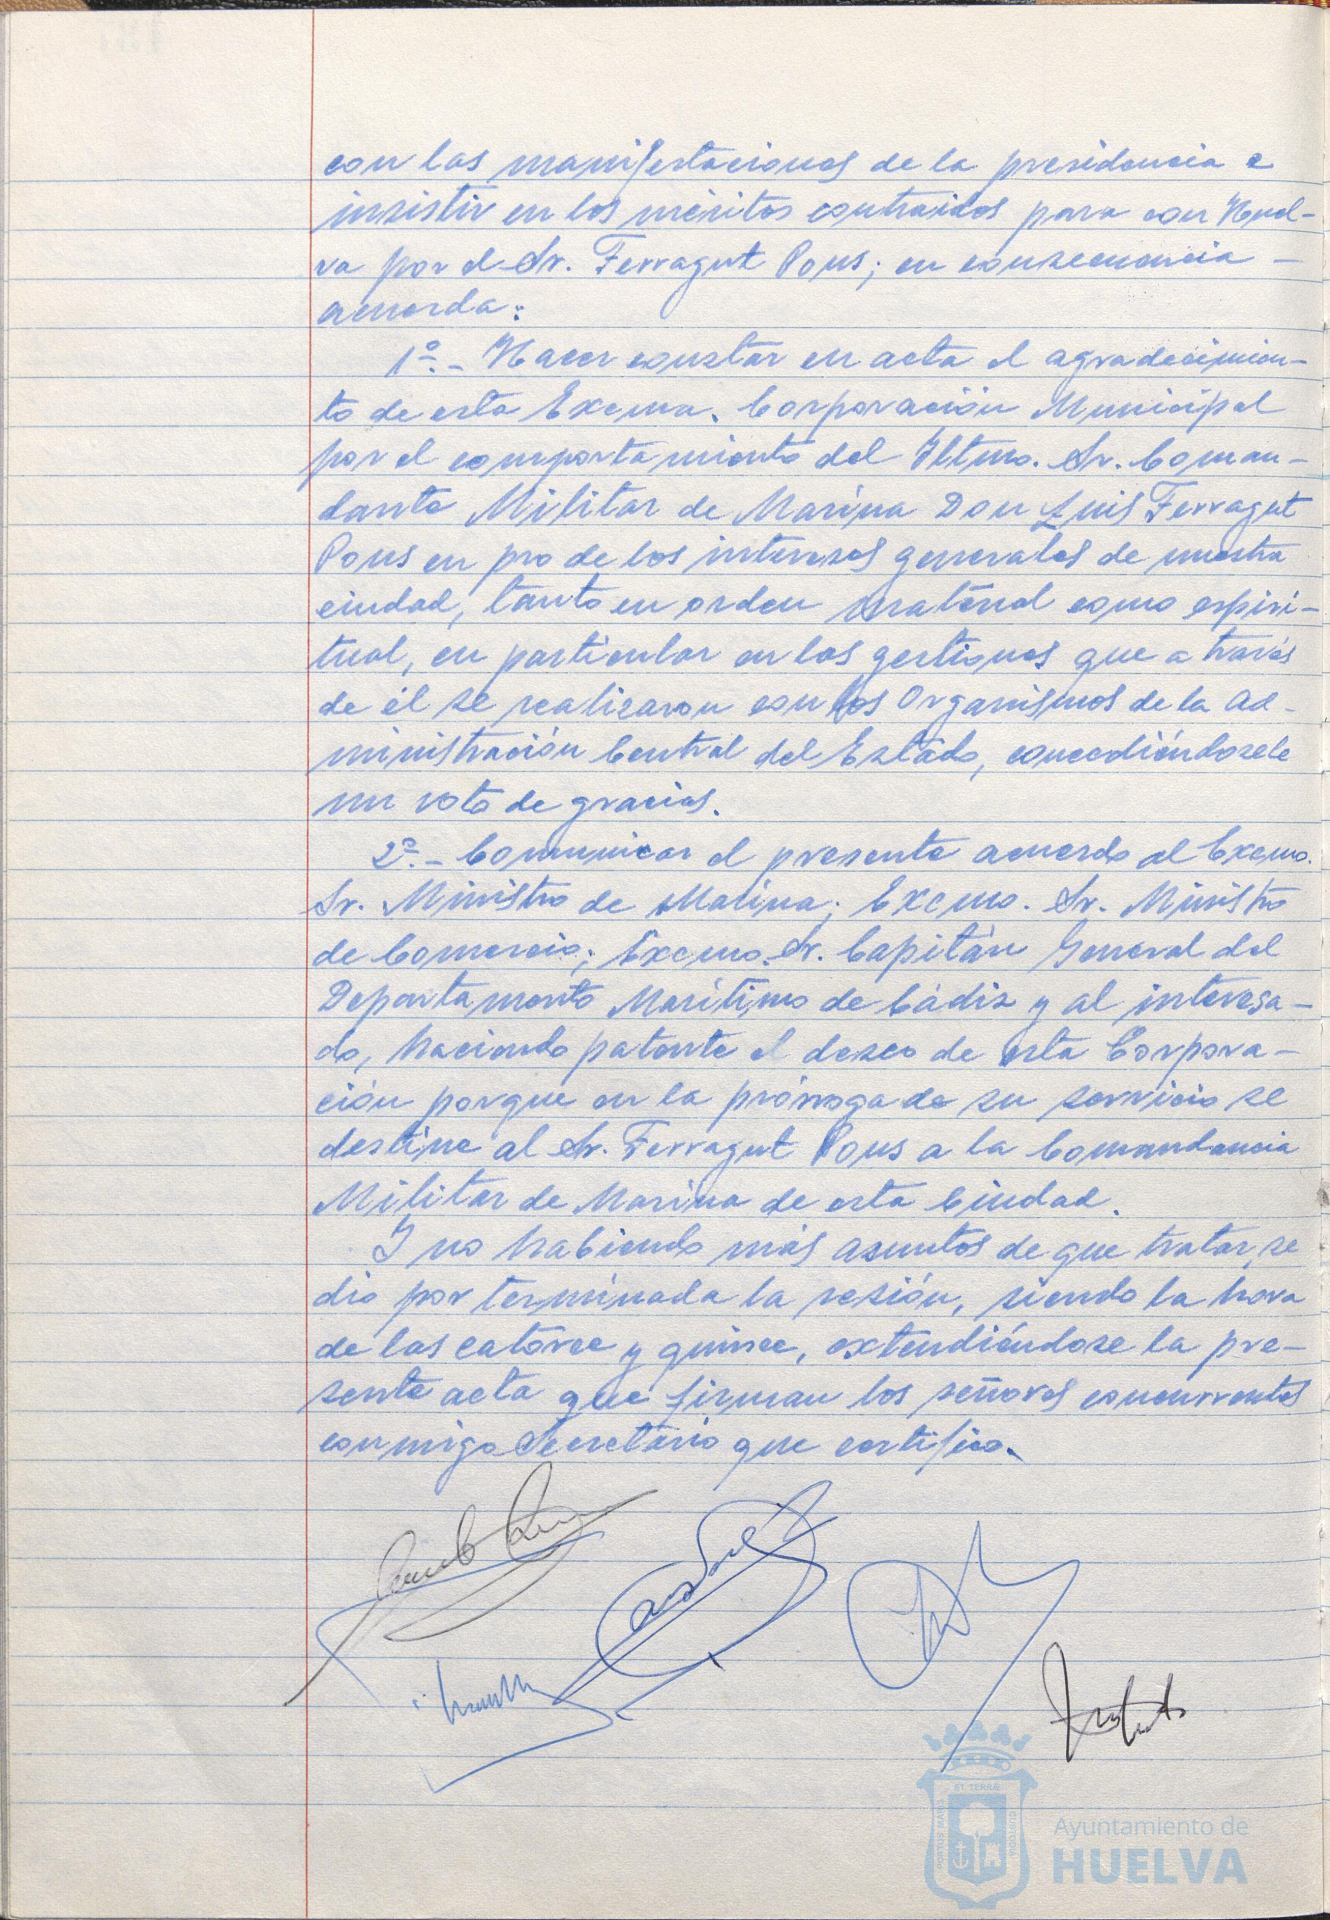 con las manifestaciones de la presidencia e
insistir en los méritos contraidos para con Huel-
va por el Sr. Ferragut Pons; en consecuencia -
acuerda:
1º.- Hacer constar en acta el agradecimien-
to de esta Excma. Corporación Municipal
por el comportamiento del Iltmo. Sr. Coman-
dante Militar de Marina Don Luis Ferragut
Pons en pro de los intereses generales de nuestra
ciudad, tanto en orden material como espiri-
tual, en particular en las gestiones que a través
de él se realizaron con los Organismos de la Ad-
ministración Central del Estado, concediéndosele
un voto de gracias.
2º.- Comunicar el presente acuerdo al Excmo.
Sr. Ministro de Marina; Excmo. Sr. Ministro
de Comercio; Excmo. Sr. Capitán General del
Departamento Marítimo de Cádiz y al interesa-
do, haciendo patente el deseo de esta Corpora-
ción porque en la prórroga de su servicio se
destine al Sr. Ferragut Pons a la Comandancia
Militar de Marina de esta Ciudad.
Y no habiendo más asuntos de que tratar, se
dio por terminada la sesión, siendo la hora
de las catorce y quince, extendiéndose la pre-
sente acta que firman los señores concurrentes
conmigo Secretario que certifico.
ET TERRÆ
PORTUS MARIS
CUSTODIA
Ayuntamiento de
HUELVA